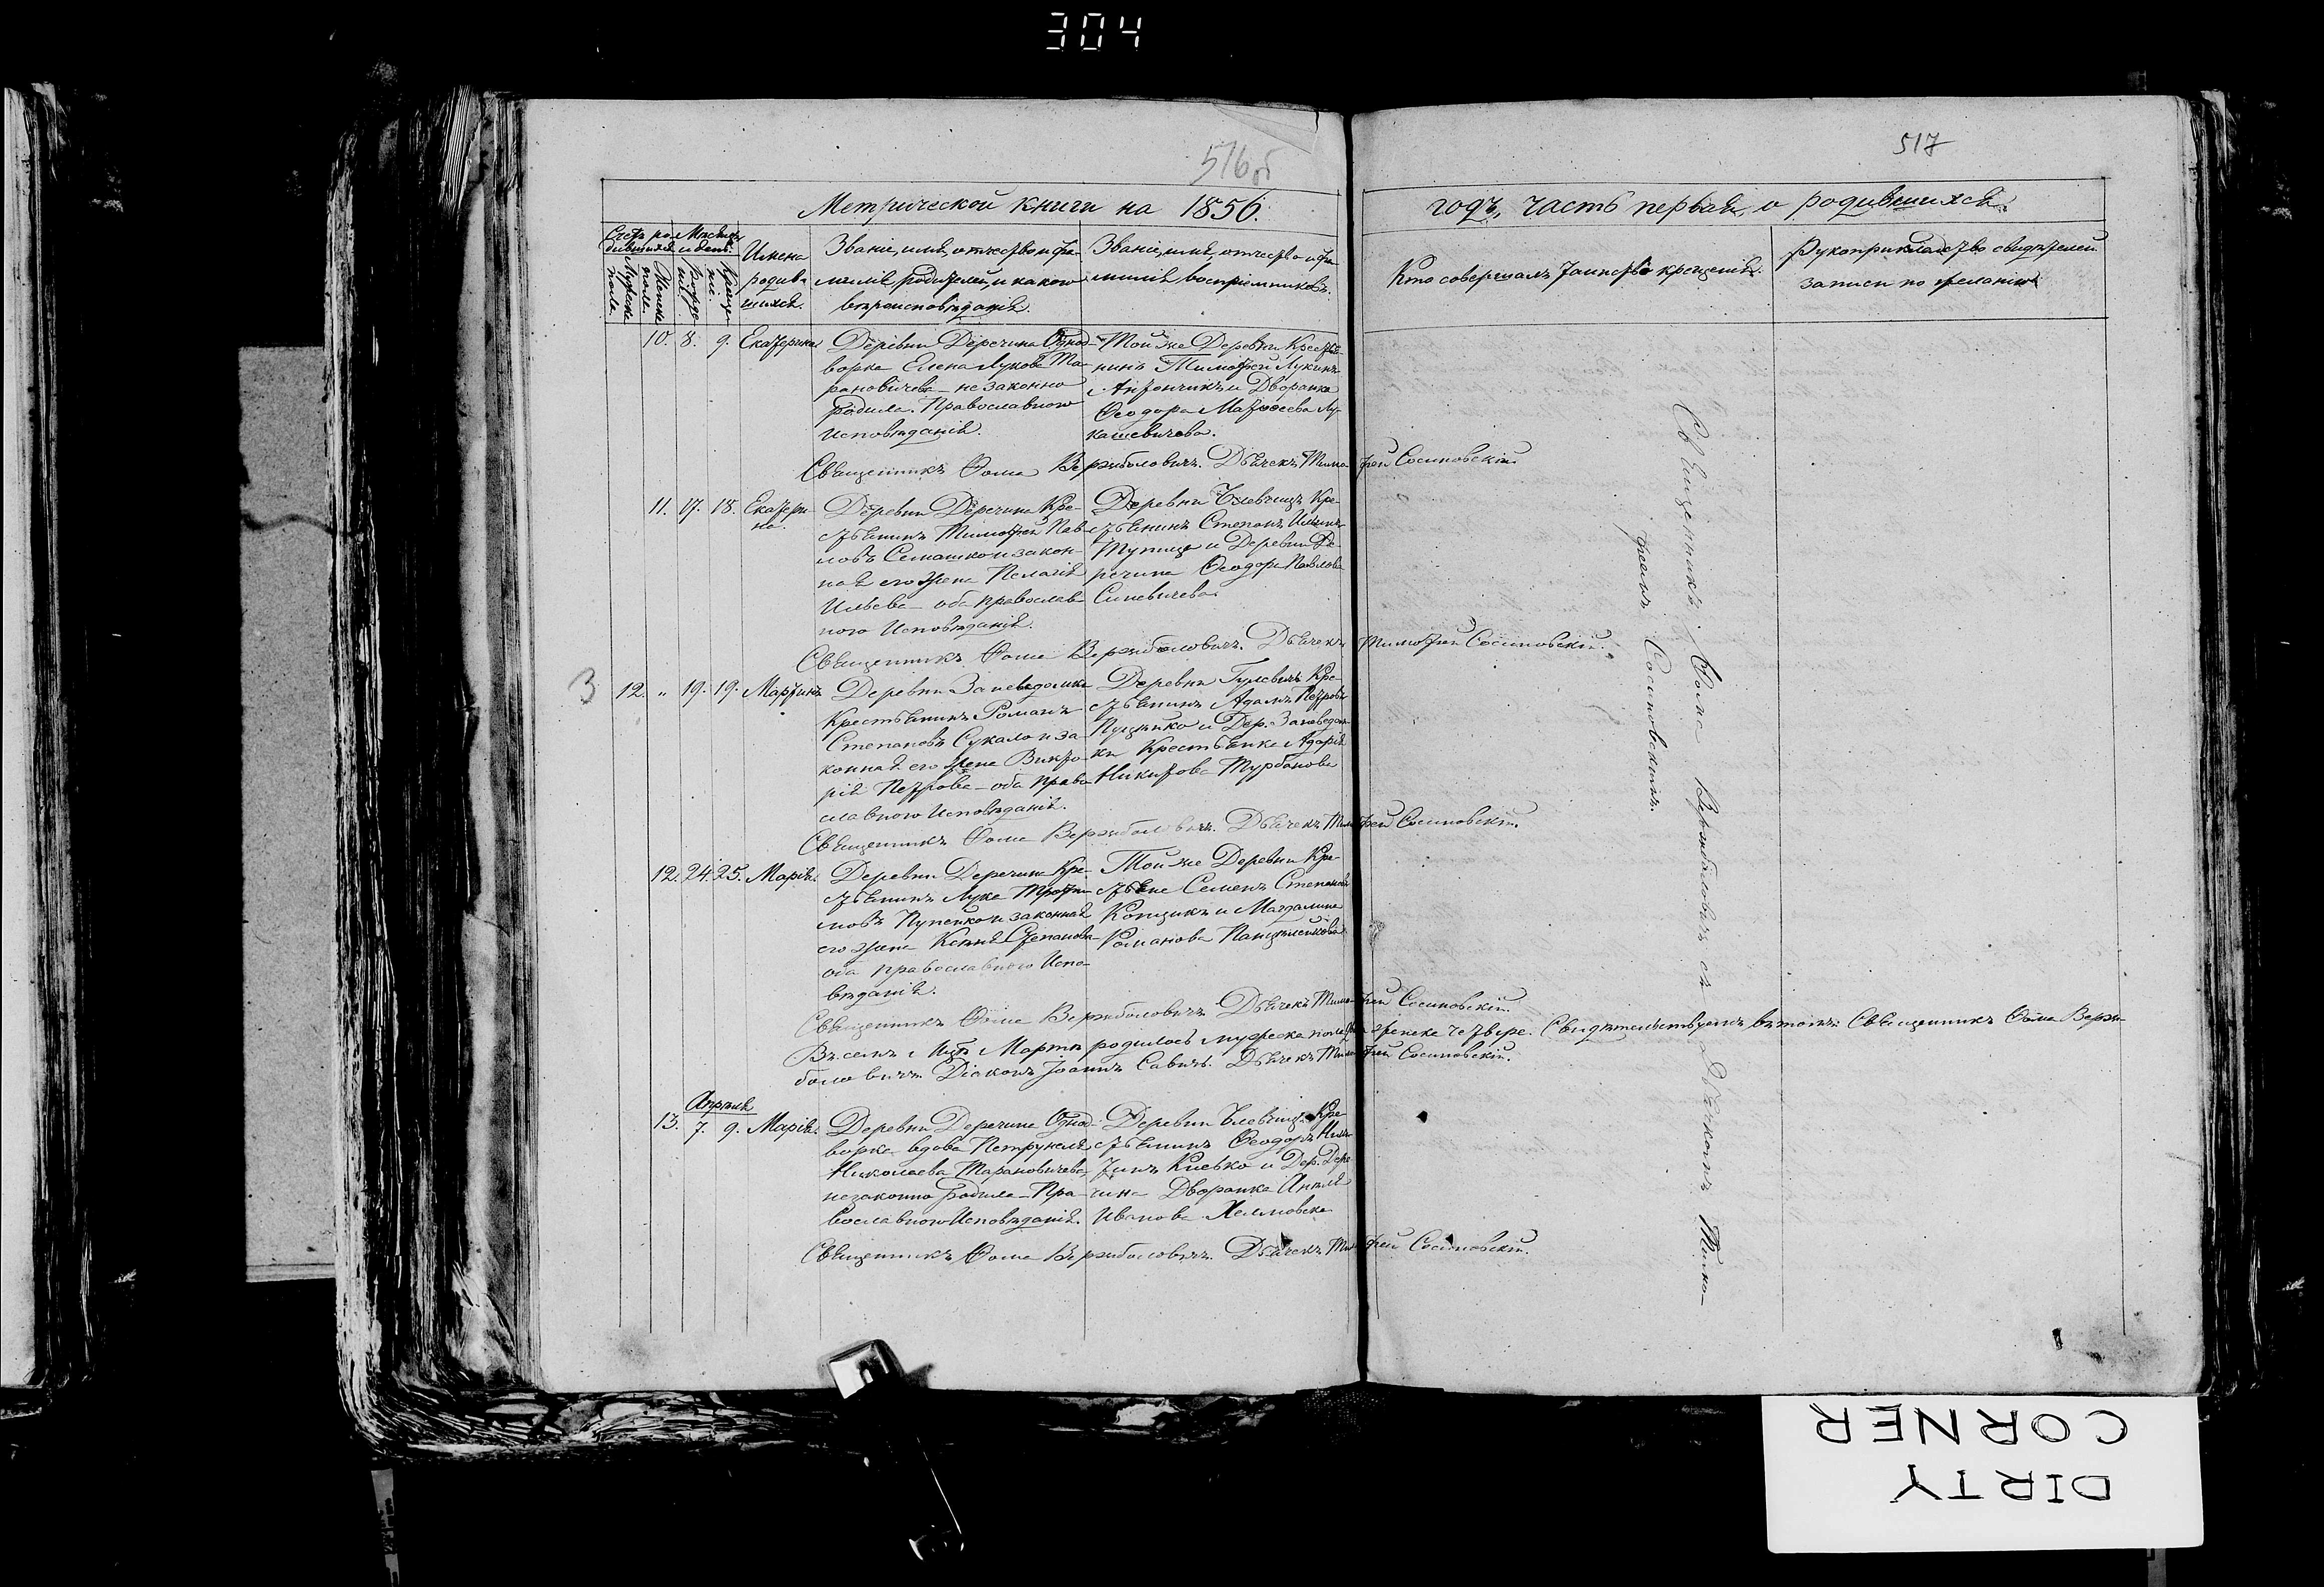 304
516 об
517
Метрической книги на 1856.
годъ, часть первая, о родившихся.
Счетъ ро- Мѣсяцъ
дившихся и день.
Мужеска пола.
Женска пола.
рожде нія.
Креще нія.
Имена
родив-
шихся.
Званіе, имя, отчество и фа-
милія родителей, и какого
вѣроисповѣданія.
Званіе, имя, отчество и фа-
милія воспріемниковъ.
Кто совершалъ таинство крещенія.
Рукоприкладство свидѣтелей
записи по желанію
10. 8. 9. Екатерина
Деревни Деречина Одно-
ворка Елена Лукова Та-
рановичева - незаконно
родила. Православного
Исповѣданія.
Той же Деревни Крестья-
нинъ Тимофей Лукинъ
Антончикъ и Дворянка
Феодора Матѳеева Лу-
кашевичева.
Священникъ Фома Вержболовичъ. Дьячекъ Тимофей Сосиновскій
11. 17. 18. Екатери-
на.
Деревни Деречина Кре-
стьянинъ Тимофей Пав-
ловъ Семашко и закон-
ная его жена Пелагія
Ильева - оба православ-
ного Исповѣданія.
Деревни Кре-
стьянинъ Степанъ
Тупица и Деревни Де-
речина Феодора Павлова
Синевичева
Священникъ Фома Вержболовичъ. Дьячекъ Тимофей Сосиновскій.
3 12. " 19. 19. Мартинъ
Деревни
Крестьянинъ Романъ
Степановъ Сукало и за-
конная его жена Викто-
рія Петрова - оба право-
славного Исповѣданія.
Деревни Гулевичъ Кре-
стьянинъ Адамъ Петровъ
и Дер.
ки Крестьянка Адарія
Никитова Турбанова
Священникъ Фома Вержболовичъ. Дьячекъ Тимофей Сосиновскій.
12. 24. 25. Марія.
Деревни Деречина Кре-
стьянинъ Лука Трофи-
мовъ Пупейко и законная
его жена Ксенія Степанова
оба православного Испо-
вѣданія.
Той же Деревни Кре-
стьяне Семенъ Степановъ
Копчикъ и Магдалина
Романова
Священникъ Фома Вержболовичъ Дьячекъ Тимофей Сосиновскій.
Въ семъ Мцѣ Мартѣ родилось мужеска пола женска четверо. Свидѣтельствуемъ въ томъ: Священникъ Фома Верж-
боловичъ Діаконъ Іоаннъ Савичъ. Дьячекъ Тимофей Сосиновскій.
Апрѣля
13. 7. 9. Марія.
Деревни Деречина Одно-
ворка вдова Петрунеля
Николаева Тарановичева
незаконно родила - Пра-
вославного Исповѣданія.
Деревни Кре-
стьянинъ Феодоръ Ники-
тинъ Киевко и Дер. Дере-
чина Дворянка Анеля
Иванова Хелмовска
Священникъ Фома Вержболовичъ. Дьячекъ Тимофей Сосиновскій.
Священникъ Фома Вержболовичъ съ Дьячкомъ Тимо-
феемъ Сосиновскимъ.
DIRTY
CORNER